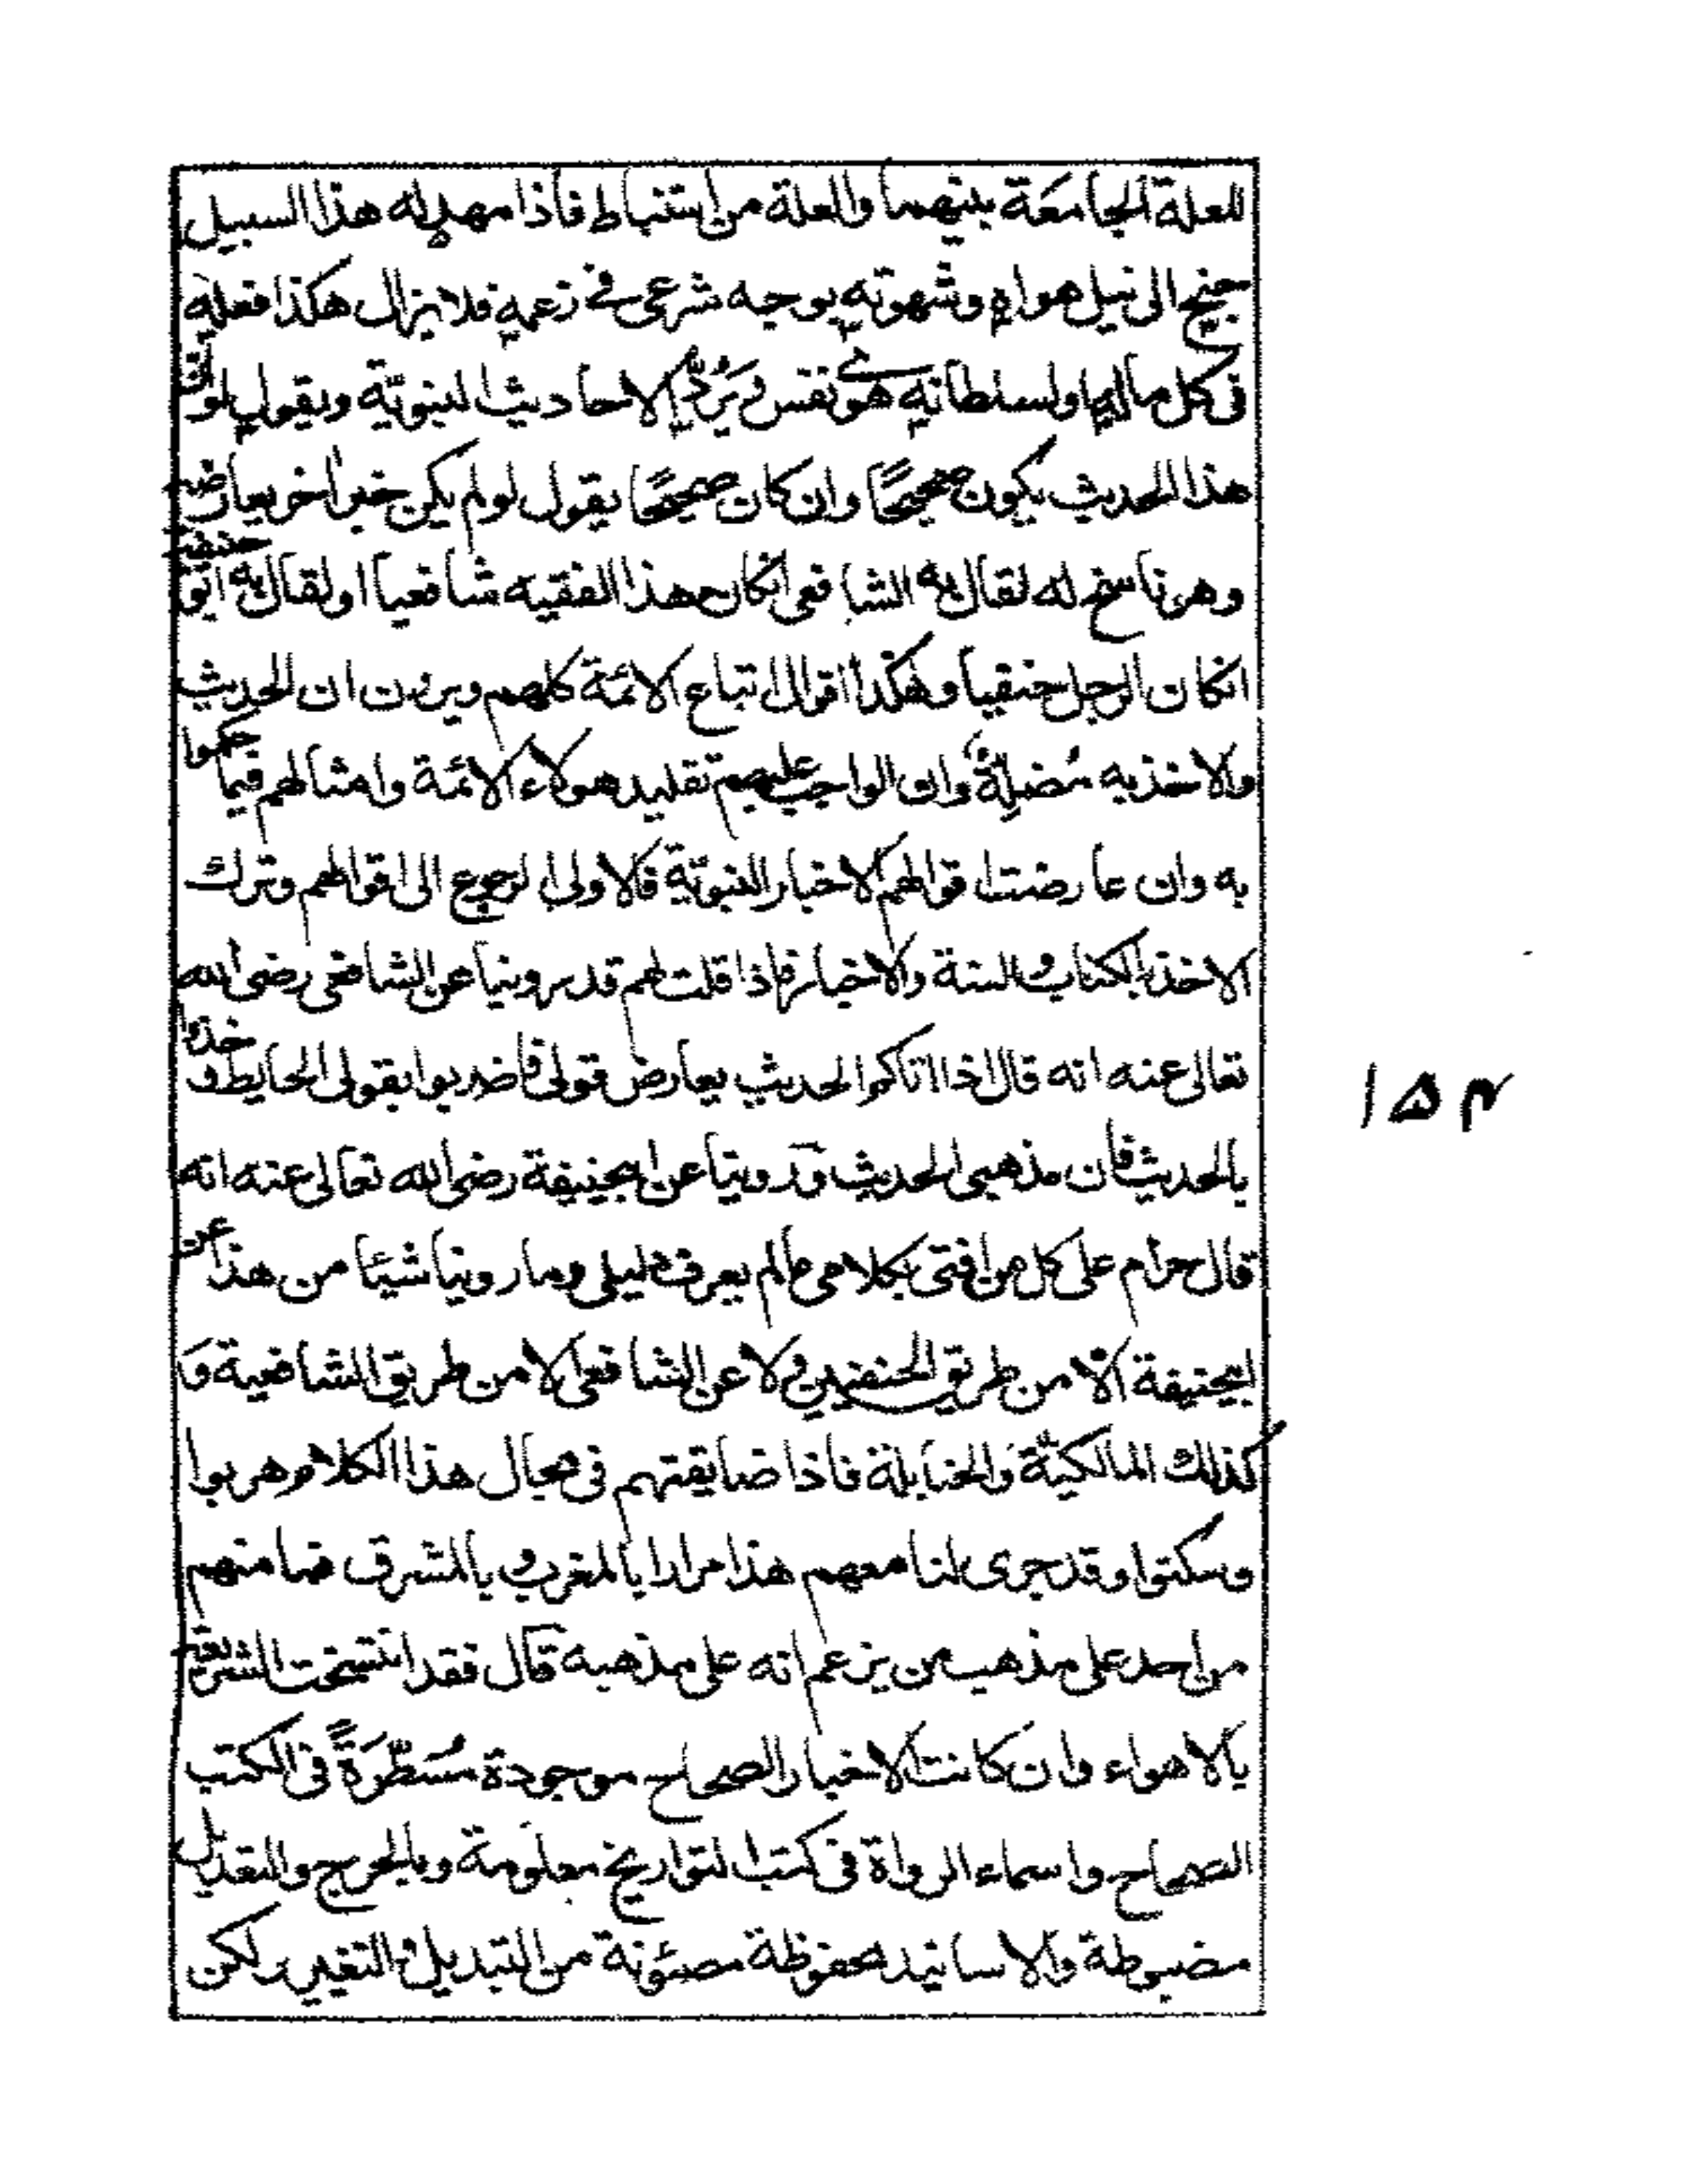 للعلة الجامعة بينهما والعلة من استنباط فاذا مهد له هذا السبيل
جنح الى نيل هواه وشهوته بوجه شرعى فى زعمه فلا يزال هكذا فعله
فى كل ماله اولسلطانه فى هوى نفس ويرد الاحاديث النبوية ويقول لو ان
هذا الحديث يكون صحيحًا وان كان صحيحًا يقول لو لم يكن خبرا خر يعارضه
وهو ناسخ له لقال به الشافعى انكان هذا الفقيه شافعيا او لقال به ابو حنيفة
انكان الرجل حنفيا وهكذا اقوال اتباع الائمة كلهم ويرون ان الحديث
والاخذ به مُضِلةٌ وان الواجب عليهم تقليد هولاء الائمة وامثالهم فيما حكموا
به وان عارضت اقوالهم الاخبار النبوية فالاولى الرجوع الى اقوالهم وترك
الاخذ بالكتاب والسنة والاخبار فاذا قلت لهم قد روينا عن الشافعى رضى الله
تعالى عنه انه قال اذا اتاكم الحديث يعارض قولى فاضربوا بقولى الحايط و خذوا
بالحديث فان مذهبى الحديث وقد روينا عن ابيحنيفة رضى الله تعالى عنه انه
قال حرام على كل من افتى بكلامى مالم يعرف دليلى وما روينا شيئا من هذا عن
ابيحنيفة الا من طريق الحنفيين ولا عن الشافعى الا من طريق الشافعية و
كذلك المالكية والحنابلة فاذا ضايقتهم فى مجال هذا الكلام هربوا
وسكتوا وقد جرى لنا معهم هذا مرارا بالمغرب و بالمشرق فما منهم
من احد على مذهب من يزعم انه على مذهبه قال فقد انتسخت الشريعة
بالاهواء وان كانت الاخبار الصحاح موجودة مُسَطَّرَةً فى الكتب
الصحاح واسماء الرواة فى كتب التواريخ معلومة وبالجرح والتعديل
مضبوطة والاسانيد محفوظة مصئونة من التبديل والتغير ولكن
١٥٣